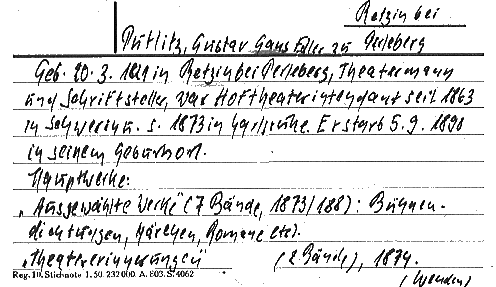 Retzin bei
Putlitz, Gustav Gans Edler zu Perleberg
Geb. 20. 3. 1821 in Retzin bei Perleberg, Theatermann
und Schriftsteller, war Hoftheaterintendant seit 1863
in Schwerin u. s. 1873 in Karlsruhe. Er starb 5. 9. 1890
in seinem Geburtsort.
Hauptwerke:
„Ausgewählte Werke" (7 Bände, 1873/188): Bühnen-
dichtungen, Märchen, Romane etc).
„Theatererinnerungen" (2 Bände), 1874.
Reg. 10. Stichnote 1. 50. 232 000. A. 803. S. 4062
(Wenden)